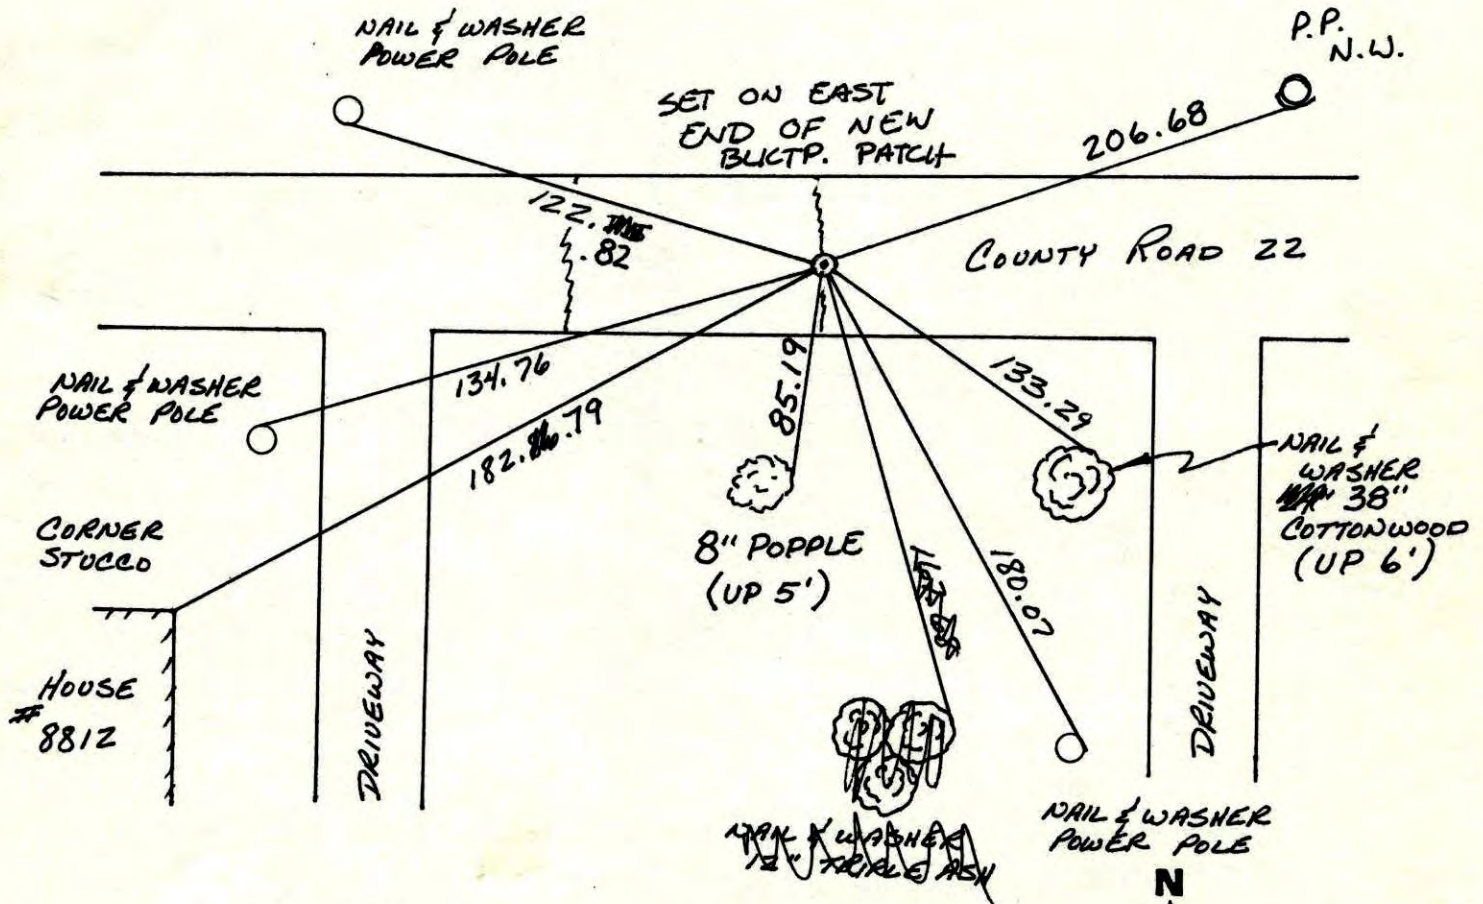 NAIL & WASHER
POWER POLE
P.P.
N.W.
SET ON EAST
END OF NEW
BLKTP. PATCH
206.68
122.
.82
COUNTY ROAD 22
NAIL & WASHER
POWER POLE
134.76
182.
.79
85.19
133.29
NAIL &
WASHER
38"
COTTONWOOD
(UP 6')
CORNER
STUCCO
8" POPPLE
(UP 5')
180.07
HOUSE
# 8812
DRIVEWAY
DRIVEWAY
NAIL & WASHER
12" TRIPLE ASH
NAIL & WASHER
POWER POLE
N